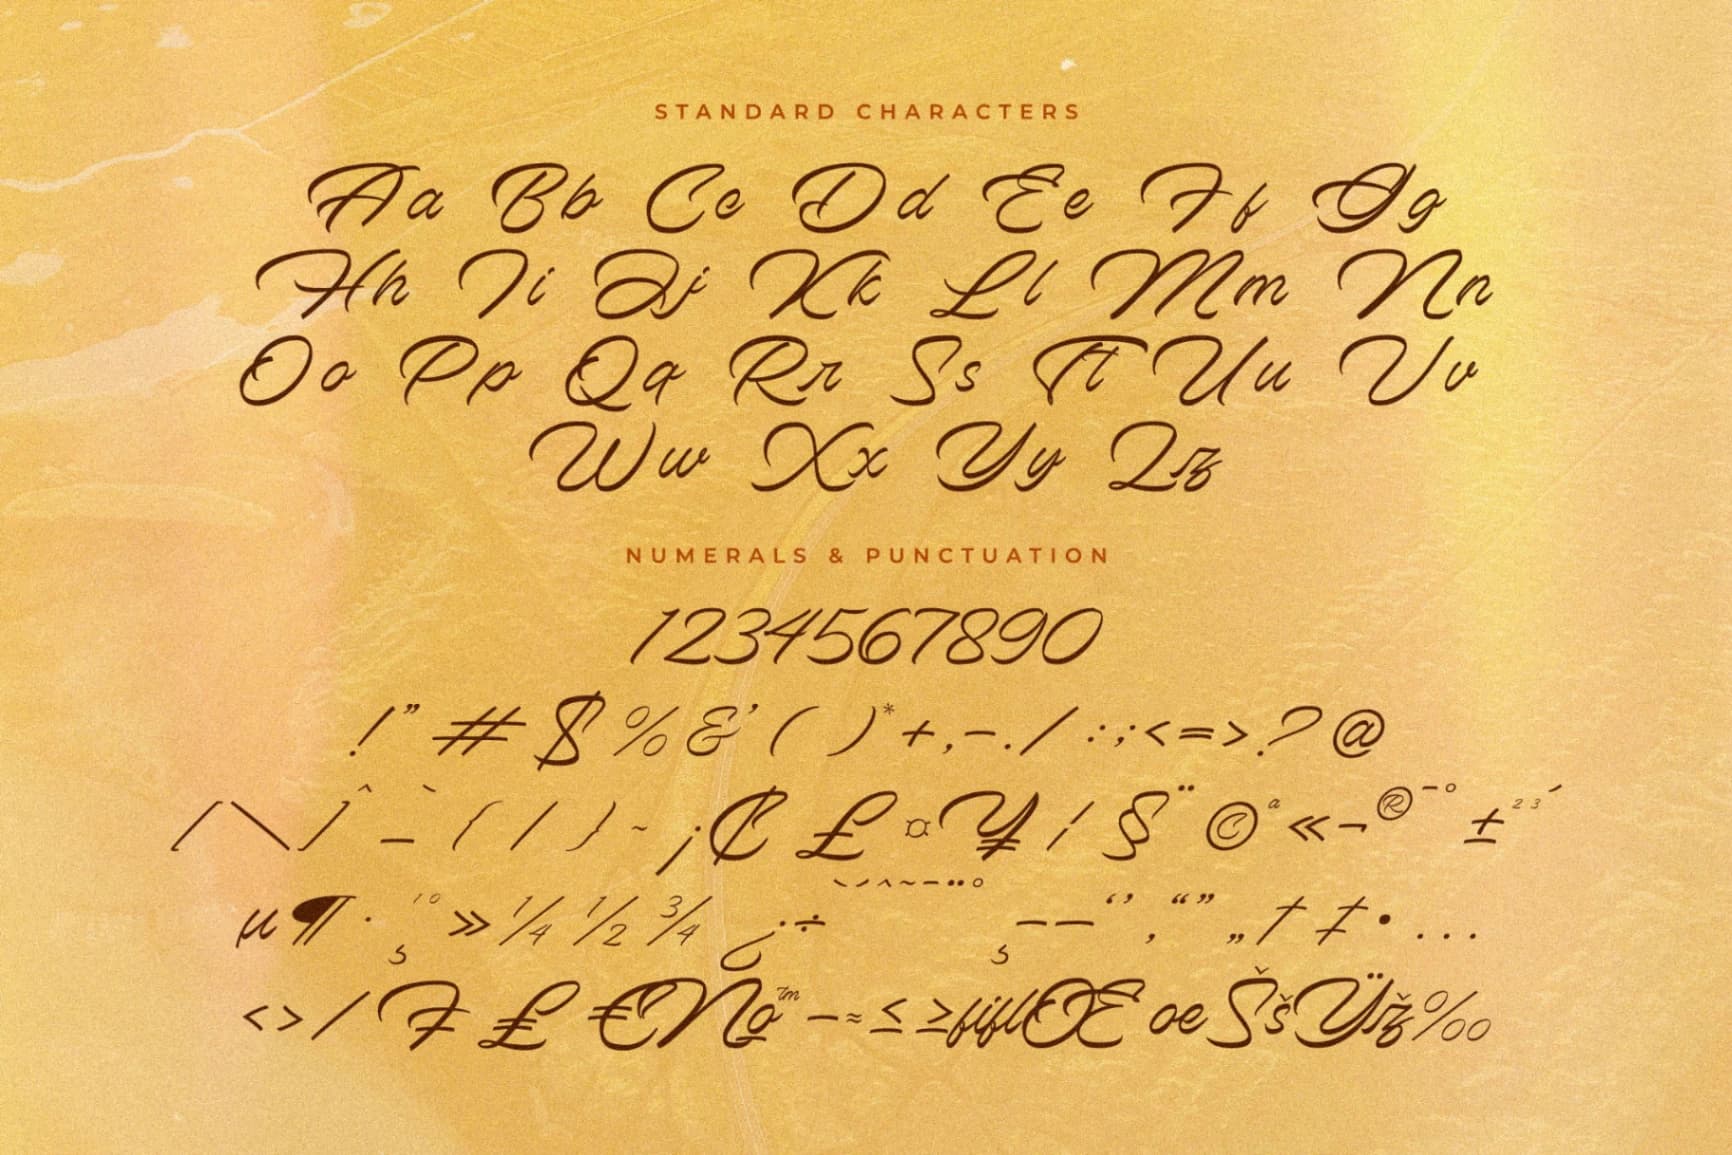 STANDARD CHARACTERS
Aa Bb Cc Dd Ee Ff Gg
Hh Ii Jj Kk Ll Mm Nn
Oo Pp Qq Rr Ss Tt Uu Vv
Ww Xx Yy Zz
NUMERALS & PUNCTUATION
1234567890
!" # $ % & ' ( ) * + , - . / : ; < = > ? @
[ \ ] ^ _ ` { | } ~ ¡ ¢ £ ¤ ¥ ¦ § ¨ © ª « ¬ ® ¯ ° ± ² ³ ´
µ ¶ · ¸ ¹ º » ¼ ½ ¾ ¿ ÷ – — ‘ ’ ‚ “ ” „ † ‡ • …
‹ › ⁄ ₣ ₤ € № ™ − ≈ ≤ ≥ fi fl Œ œ Š š Ÿ ž ‰